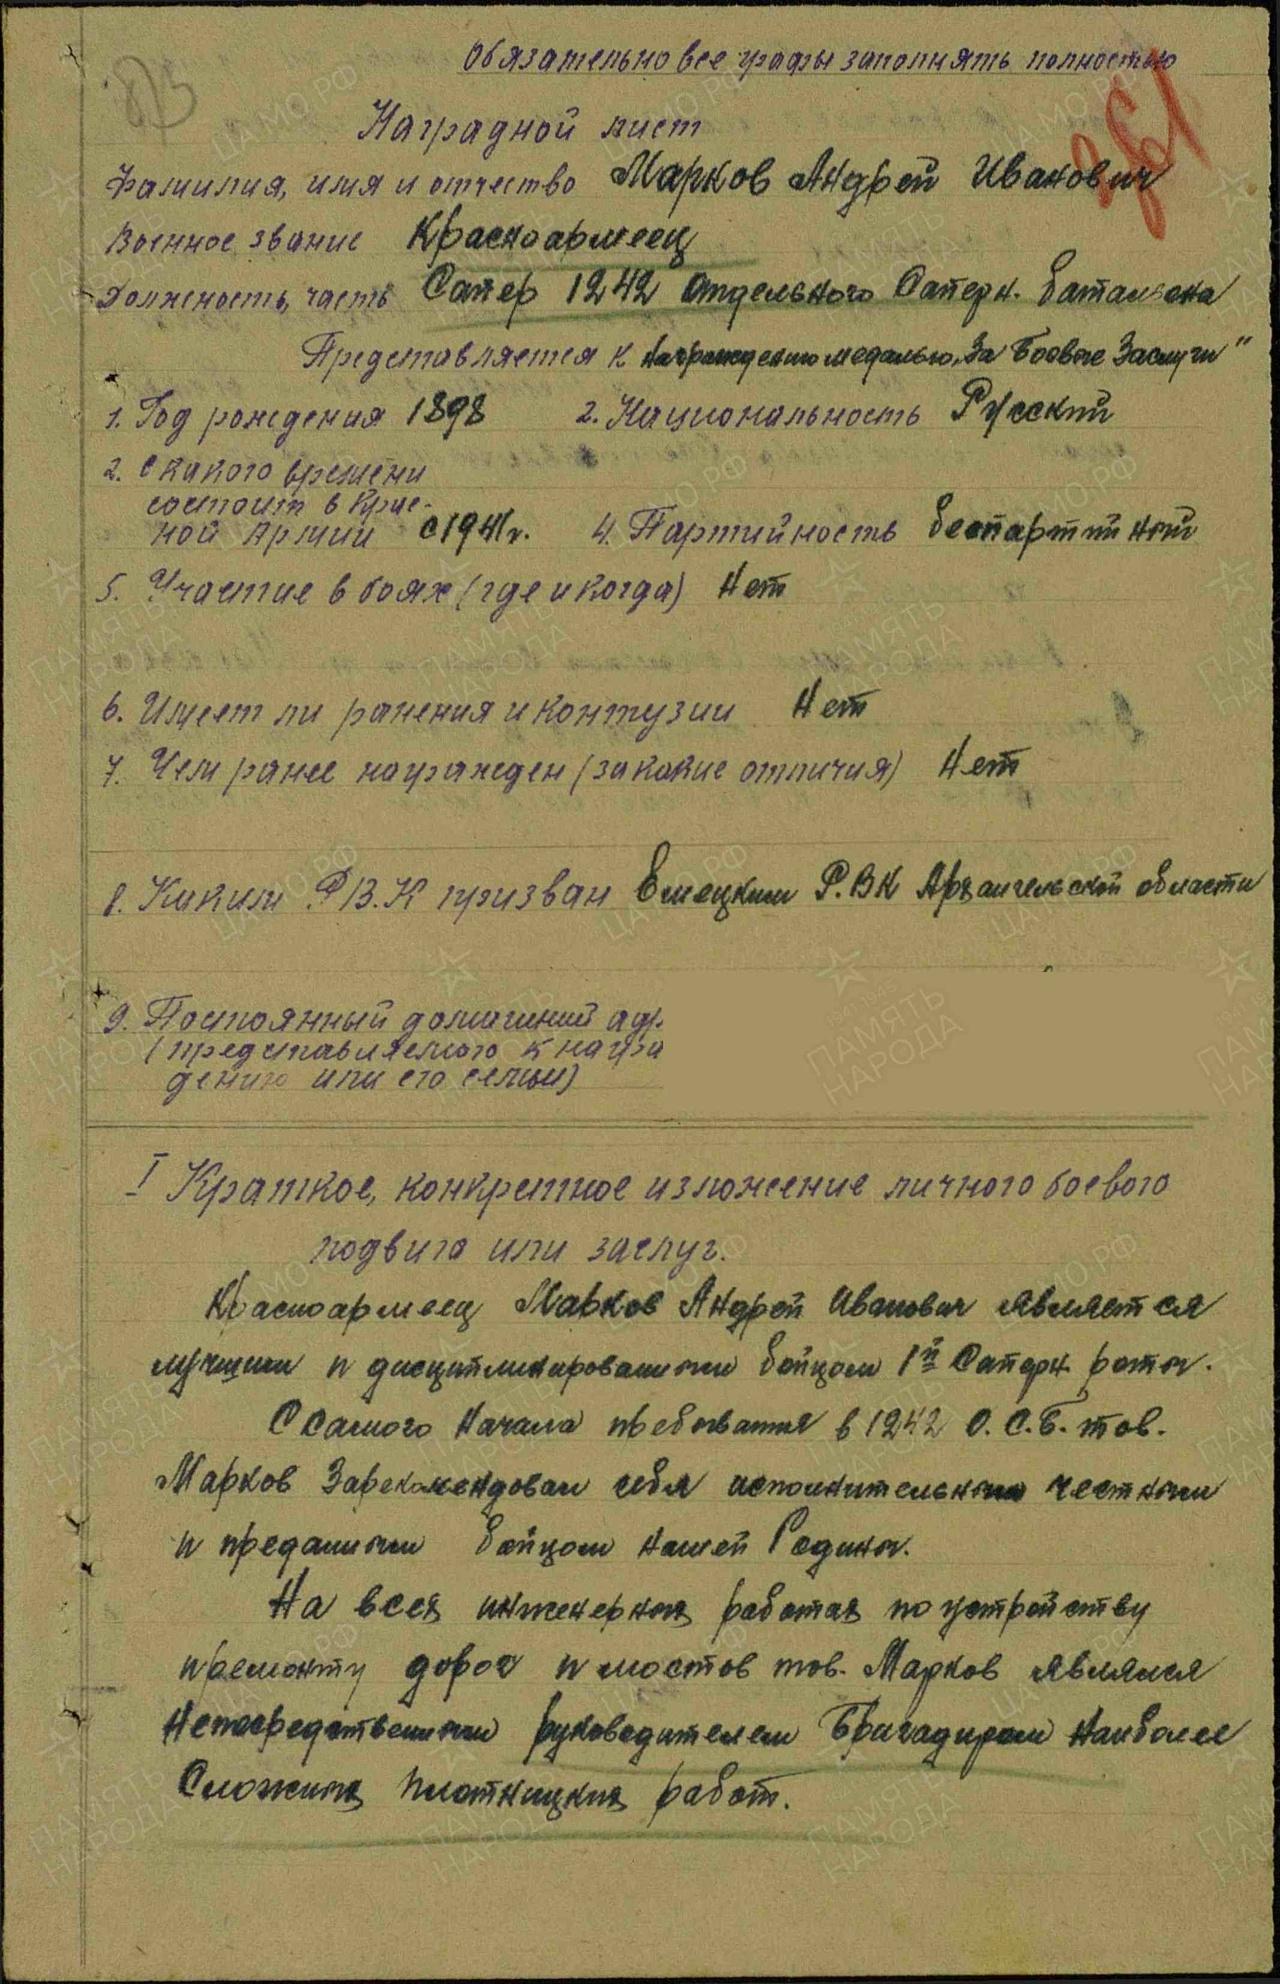 Обязательно все графы заполнять полностью
873
261
Наградной лист
Фамилия, имя и отчество Марков Андрей Иванович
Военное звание Красноармеец
Должность, часть Сапер 1242 отдельного Саперн. батальона
Представляется к награждению медалью „За Боевые Заслуги"
1. Год рождения 1898 2. Национальность Русский
2. С какого времени
состоит в Крас-
ной Армии с 1941 г. 4. Партийность беспартийный
5. Участие в боях (где и когда) Нет
6. Имеет ли ранения и контузии Нет
7. Чем ранее награжден (за какие отличия) Нет
8. Каким Р.В.К призван Емецким Р.ВК Архангельской области
9. Постоянный домашний адр
(представляемого к награ
дению или его семьи)
I Краткое, конкретное изложение личного боевого
подвига или заслуг.
Красноармеец Марков Андрей Иванович является
лучшим и дисциплинированным бойцом 1й Саперн. роты.
С самого начала пребывания в 1242 О.С.Б. тов.
Марков Зарекомендовал себя исполнительным честным
и преданным бойцом нашей Родины.
На всех инженерных работах по устройству
и ремонту дорог и мостов тов. Марков являлся
Непосредственным руководителем Бригадиром наиболее
Сложных плотницких работ.
ПАМЯТЬ НАРОДА
ЦАМО РФ